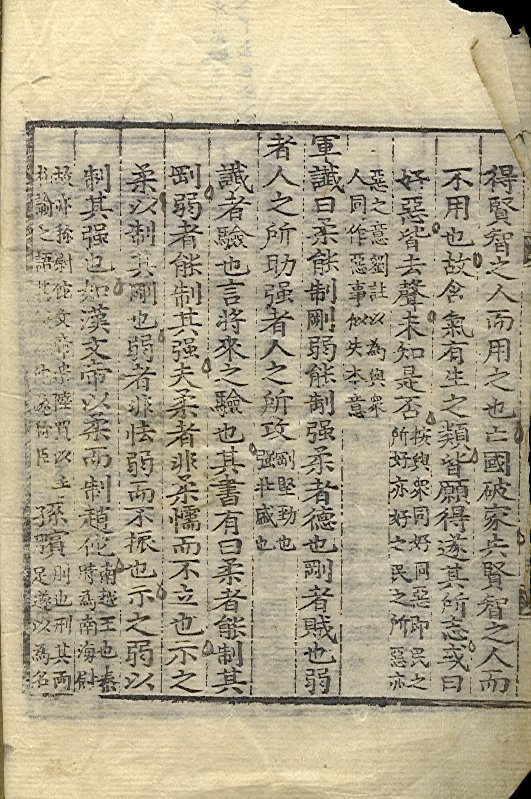 得賢智之人而用之也亡國破家失賢智之人而
不用也故含氣有生之類皆願得遂其所志或曰
好惡皆去聲未知是否按與衆同好同惡即民之
所好亦好之民之所惡亦
惡之意劉註以為與衆
人同作惡事似失本意
軍讖曰柔能制剛弱能制强柔者德也剛者賊也弱
者人之所助强者人之所攻剛堅勁也
强壯盛也
讖者驗也言將來之驗也其書有曰柔者能制其
剛弱者能制其强夫柔者非柔懦而不立也示之
柔以制其剛也弱者非怯弱而不振也示之弱以
制其强也如漢文帝以柔而制趙佗南越王也秦
時為南海尉
文帝 陸賈以 孫臏則也刑其兩
足遂以為名
論之語